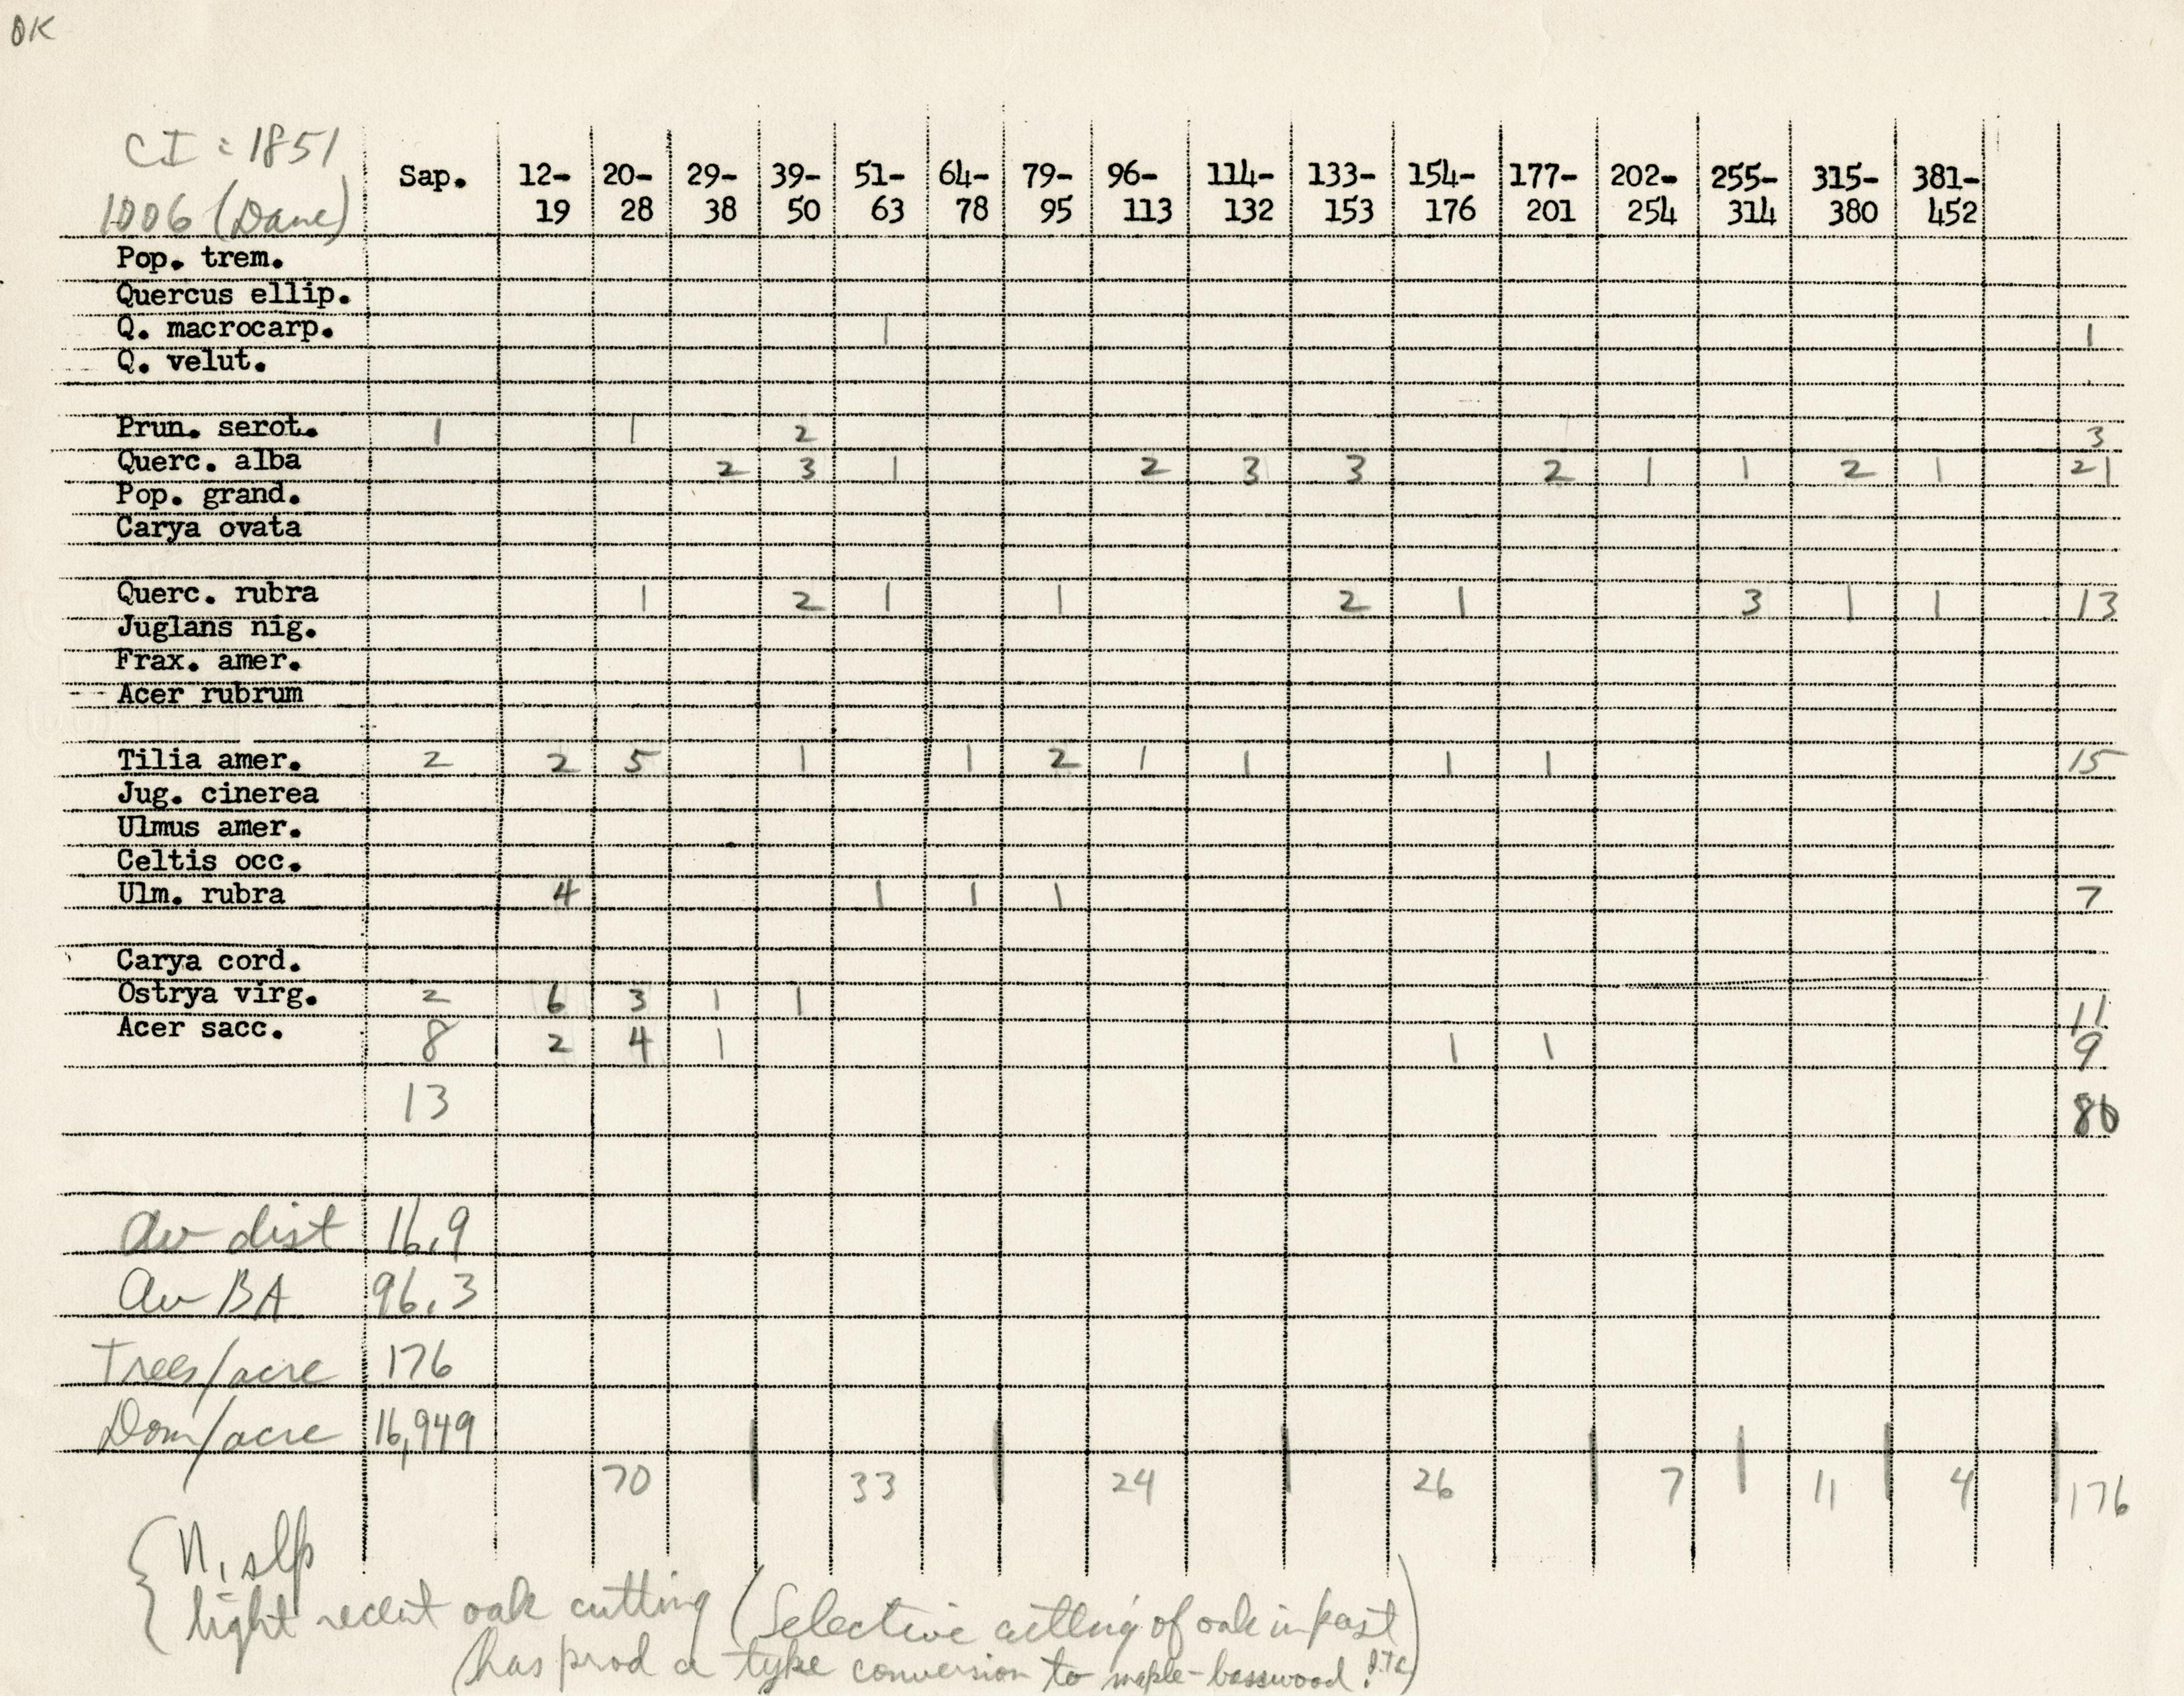 OK
CI = 1851
1006 (Dane)
Sap. 12-19 20-28 29-38 39-50 51-63 64-78 79-95 96-113 114-132 133-153 154-176 177-201 202-254 255-314 315-380 381-452
Pop. trem.
Quercus ellip.
Q. macrocarp. 1 1
Q. velut.
Prun. serot. 1 1 2 3
Querc. alba 2 3 1 2 3 3 2 1 1 2 1 21
Pop. grand.
Carya ovata
Querc. rubra 1 2 1 1 2 1 3 1 1 13
Juglans nig.
Frax. amer.
Acer rubrum
Tilia amer. 2 2 5 1 1 2 1 1 1 1 15
Jug. cinerea
Ulmus amer.
Celtis occ.
Ulm. rubra 4 1 1 1 7
Carya cord.
Ostrya virg. 2 6 3 1 1 11
Acer sacc. 8 2 4 1 1 1 9
13 80
Av dist 16.9
Av BA 96.3
Trees/acre 176
Dom/acre 16,949
70 33 24 26 7 11 4 176
N. slp
light recent oak cutting (Selective cutting of oak in past
has prod a type conversion to maple-basswood! JTC)